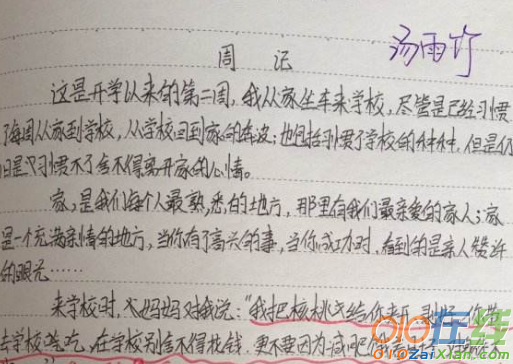 周 记
汤雨竹
这是开学以来的第二周，我从家坐车来学校，尽管是已经习惯
了每周从家到学校，从学校回到家的奔波；也包括习惯了学校的种种，但是仍
旧是习惯不了舍不得离开家的心情。
家，是我们每个人最熟悉的地方，那里有我们最亲爱的家人；家
是一个充满亲情的地方，当你有了高兴的事，当你成功时，看到的是亲人赞许
的眼光……
来学校时，妈妈对我说：“我把核桃给你
去学校 吃，在学校别舍不得花钱，更不要因为减肥
QQ在线
QQZaiXian.Com